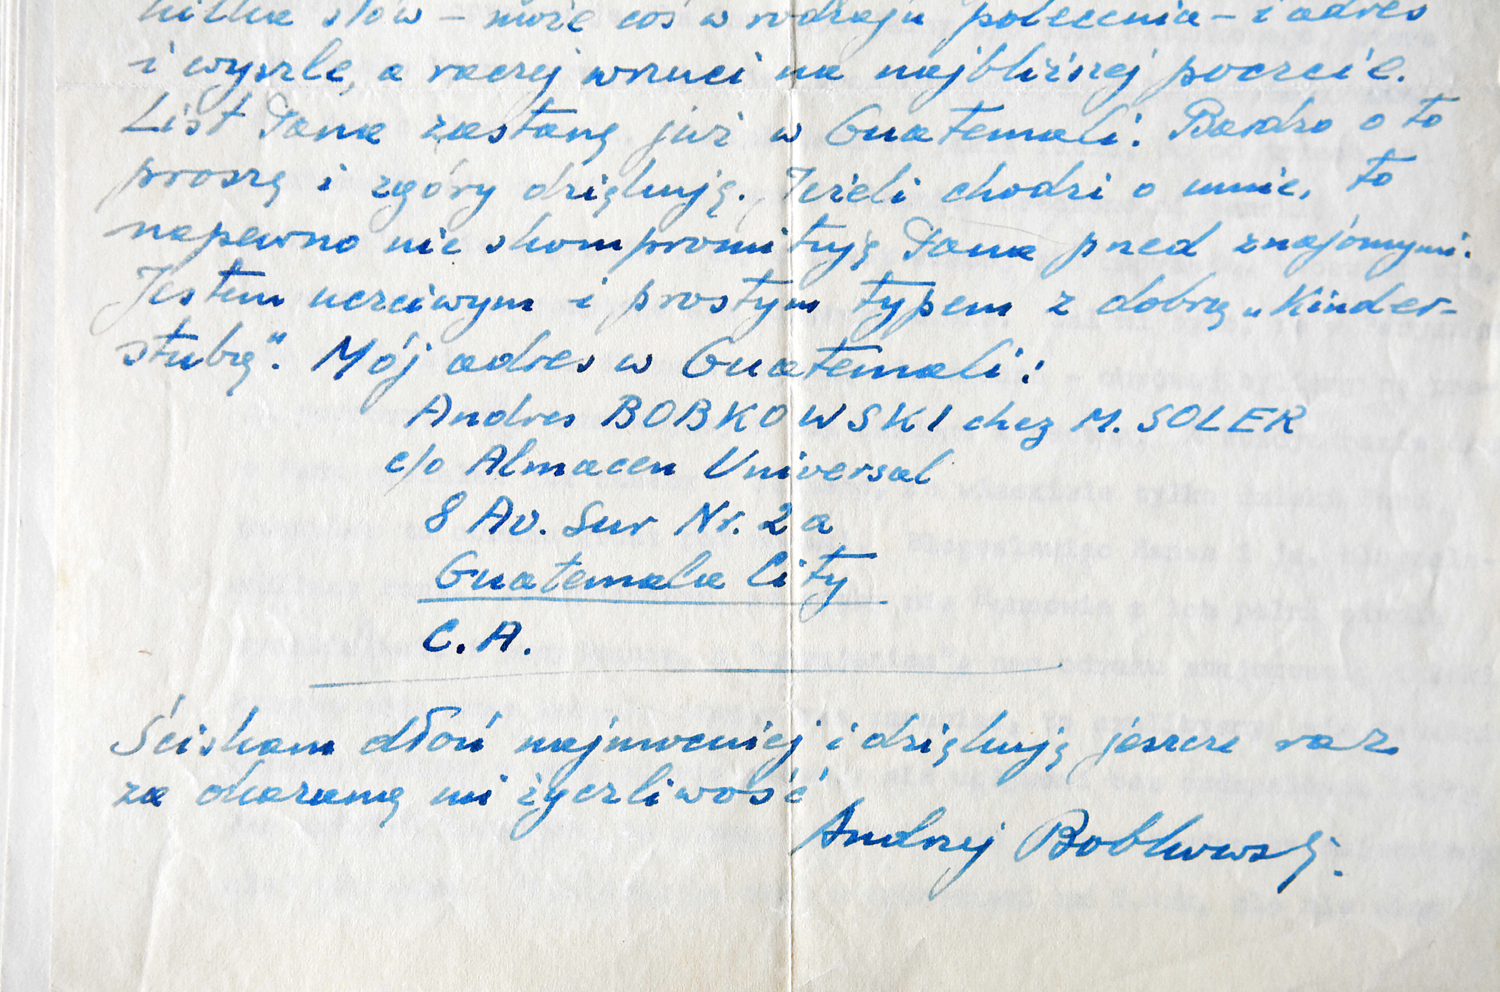 kilka słów – może coś w rodzaju polecenia – i adres
i wyśle, a raczej wrzuci na najbliższej poczcie.
List Pana zastanę już w Guatemali. Bardzo o to
proszę i zgóry dziękuję. Jeżeli chodzi o mnie, to
napewno nie skompromituję Pana przed znajomymi.
Jestem uczciwym i prostym typem z dobrą „Kinder-
stubą". Mój adres w Guatemali:
Andres BOBKOWSKI chez M. SOLER
c/o Almacen Universal
8 Av. Sur Nr. 2a
Guatemala City
C.A.
Ściskam dłoń najmocniej i dziękuję jeszcze raz
za okazaną mi życzliwość
Andrzej Bobkowski.